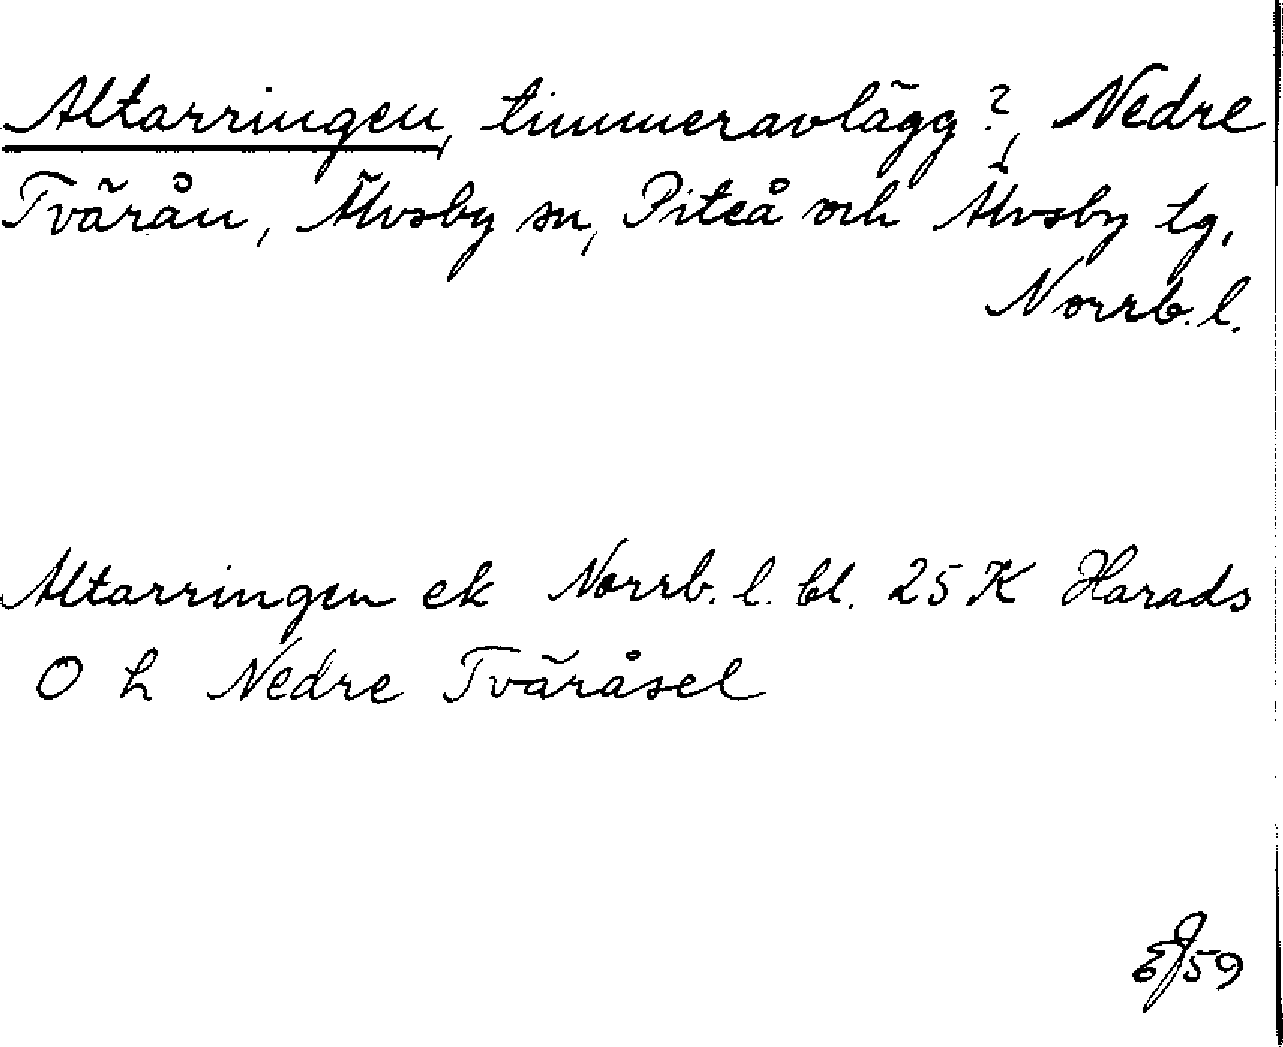 Altarringen, timmeravlägg?, Nedre
Tvärån, Älvsby sn, Piteå och Älvsby tg,
Norrb. l.
Altarringen ek Norrb. l. bl. 25 K Harads
O h Nedre Tväråsel
EJ 59